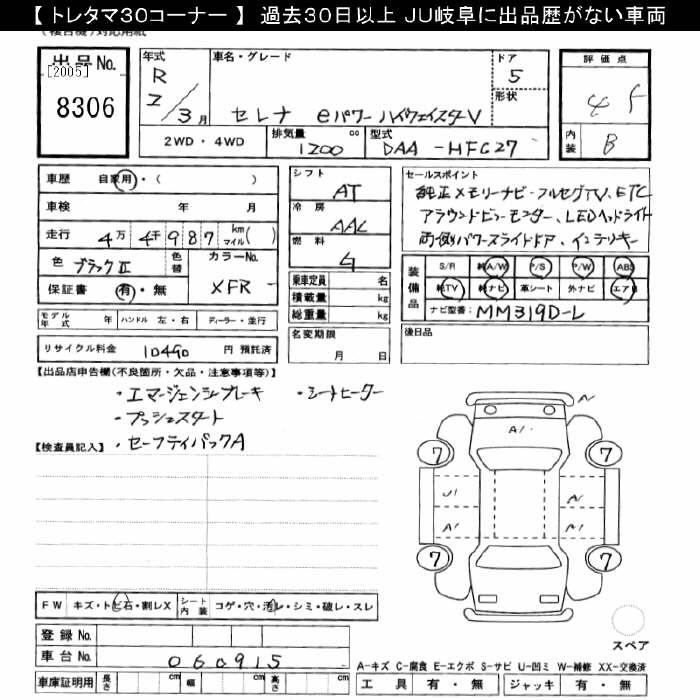 【 トレタマ30コーナー 】 過去30日以上 JU岐阜に出品歴がない車両
出品No.
[2005]
8306
年式
R
2/3月
車名・グレード
セレナ eパワー ハイウェイスターV
ドア
5
形状
評価点
4 f
内装
B
2WD・4WD
排気量
1200
cc
型式
DAA-HFC27
車歴 自家用・( )
車検 年 月
走行 4万 4千 9 8 7 km マイル( )
色 ブラックⅡ
色替
カラーNo.
XFR
保証書 有・無
シフト
AT
冷房
AAC
燃料
乗車定員 名
積載量 kg
総重量 kg
名変期限
月 日
セールスポイント
純正メモリーナビ・フルセグTV、ETC
アラウンドビューモニター、LEDヘッドライト
両側パワースライドドア、インテリキー
装備品
S/R 純A/W P/S P/W ABS
純TV 純ナビ 革シート 外ナビ エアB
ナビ型番: MM319D-L
後日品
モデル年式 年 ハンドル 左・右 ディーラー・並行
リサイクル料金 10490 円 預託済
【出品店申告欄(不良箇所・欠品・注意事項等)】
・エマージェンシーブレーキ ・シートヒーター
・プッシュスタート
・セーフティパックA
【検査員記入】
A1
7 7
U1 A
A1 A1
7 7
スペア
FW キズ・トビ石・割レX
シート内装 コゲ・穴・汚レ・シミ・破レ・スレ
登録No.
車台No. 060915
車庫証明用 長さ cm 幅 cm 高さ cm
A-キズ C-腐食 E-エクボ S-サビ U-凹ミ W-補修 XX-交換済
工具 有・無 ジャッキ 有・無